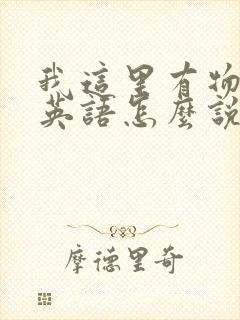 我這里有物
英語怎麼說
摩德里奇